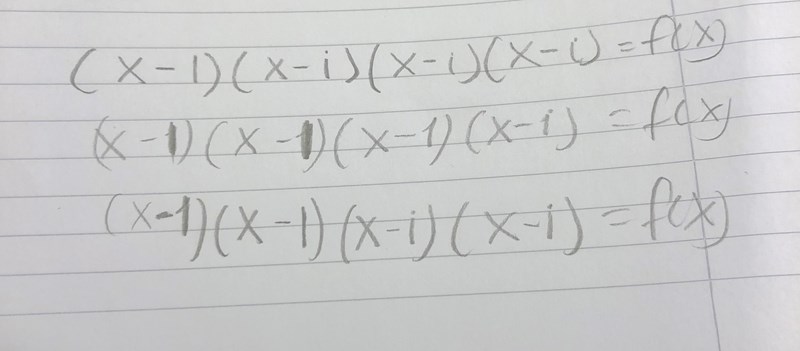 (x-1)(x-i)(x-i)(x-i)=f(x)
(x-1)(x-1)(x-1)(x-i)=f(x)
(x-1)(x-1)(x-i)(x-i)=f(x)